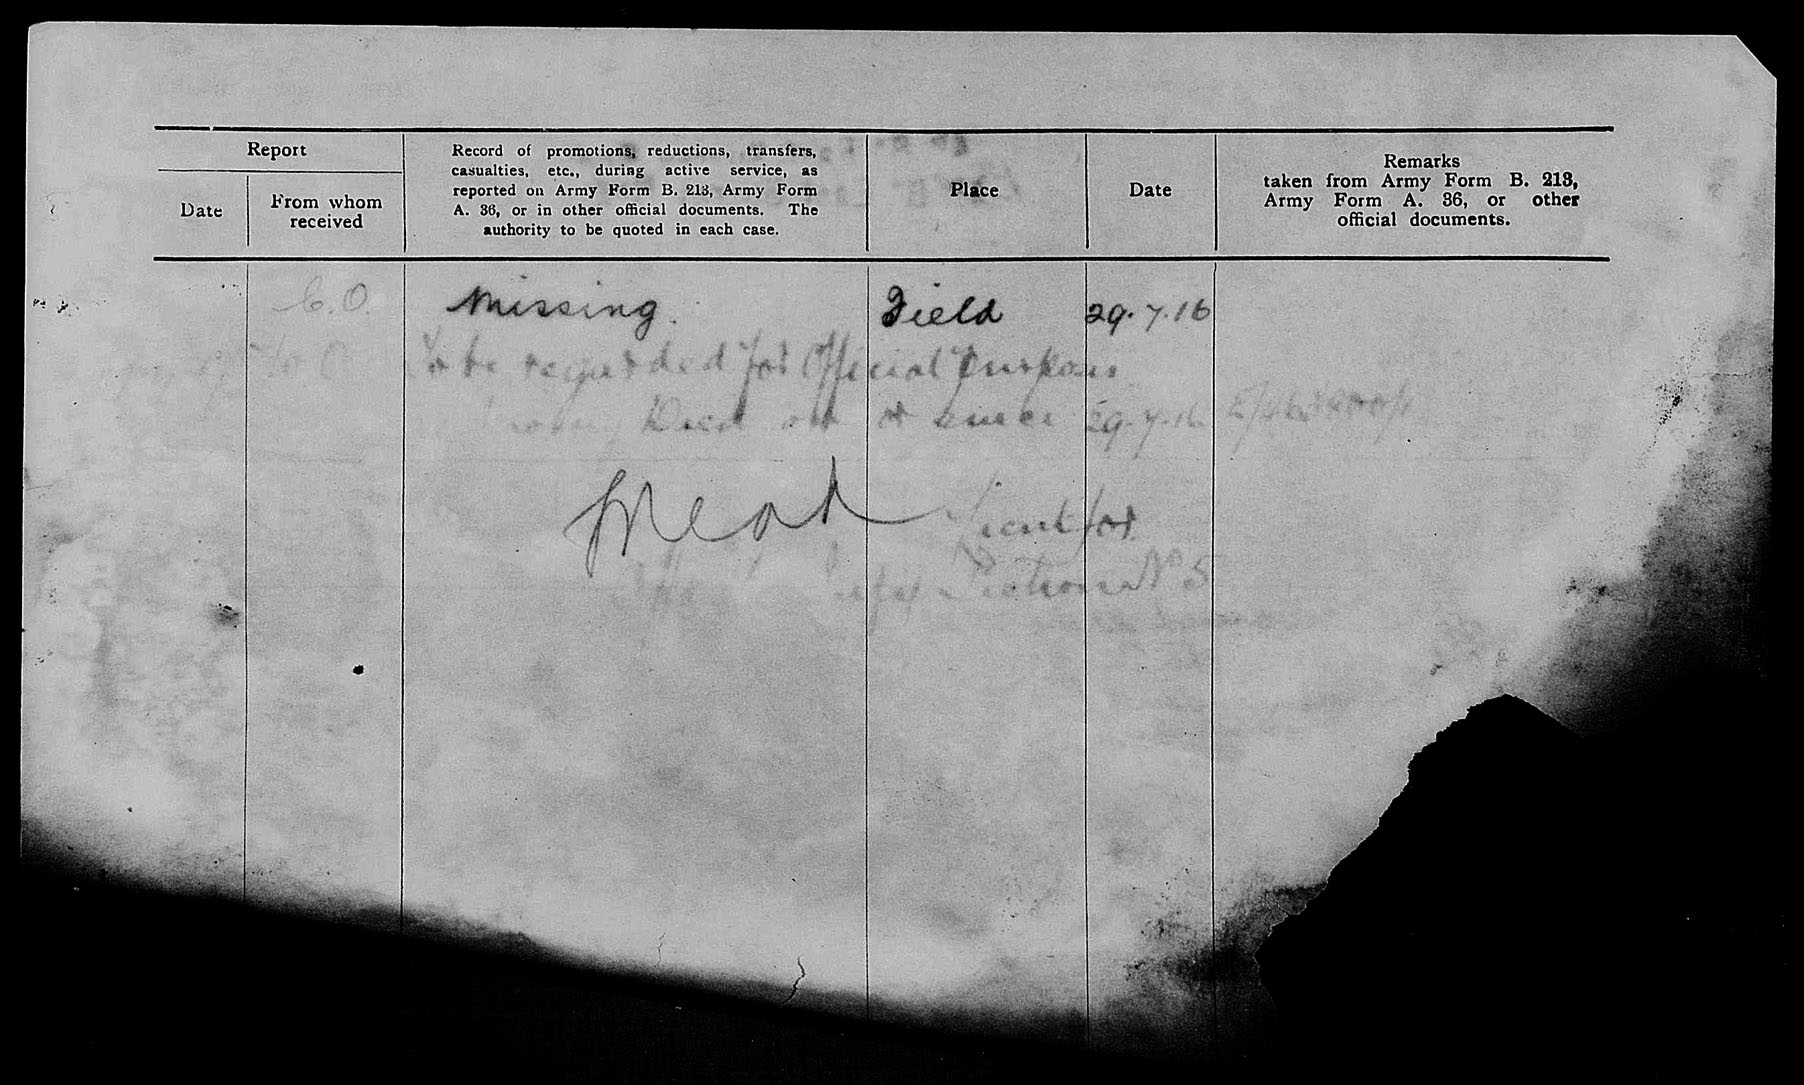 Report
Date
From whom
received
Record of promotions, reductions, transfers,
casualties, etc., during active service, as
reported on Army Form B. 213, Army Form
A. 36, or in other official documents. The
authority to be quoted in each case.
Place
Date
Remarks
taken from Army Form B. 213,
Army Form A. 36, or other
official documents.
C.O. Missing. Field 29.7.16
W O To be regarded for Official Purposes
Died on or since 29.7.16
Lieut for
Section No 5